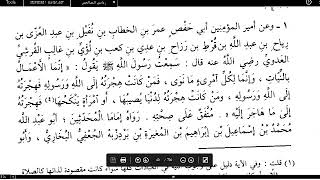 ١ - وعن أمير المؤمنين أبي حَفْصٍ عمرَ بنِ الخطابِ بنِ نُفَيْلِ بنِ عبدِ العُزَّى بن
رِياحِ بنِ عبدِ اللهِ بنِ قُرْطِ بنِ رَزَاحِ بنِ عَدِيِّ بنِ كعبِ بنِ لُؤَيِّ بنِ غالبٍ القُرشيِّ
العدويِّ رضي الله عنه قال: سمعتُ رسولَ الله ﷺ يقول: «إنَّمَا الأَعْمَالُ
بالنِّيَّاتِ، وَإِنَّمَا لِكُلِّ امْرِىءٍ مَا نَوَى، فَمَنْ كانَتْ هِجْرَتُهُ إلى اللهِ وَرَسُولِهِ، فَهِجْرَتُهُ
إلى اللهِ وَرَسُولِهِ، وَمَنْ كَانَتْ هِجْرَتُهُ لِدُنْيَا يُصِيبُهَا، أَو امْرَأَةٍ يَنْكِحُهَا فَهِجْرَتُهُ
إلى مَا هَاجَرَ إلَيْهِ». مُتَّفَقٌ على صِحَّتِهِ. رواهُ إمَامَا الْمُحَدِّثِينَ: أبُو عَبْدِ الله
مُحَمَّدُ بْنُ إسْمَاعِيلَ بْنِ إبْرَاهِيمَ بْنِ الْمُغِيرَةِ بْنِ بَرْدِزْبَهْ الْجُعْفِيُّ الْبُخَارِيُّ، وَأَبُو
(١) قلت: وفي الآية دليل على وجوب النية في العبادات كلها سواء كانت مقصودة لذاتها كالصلاة